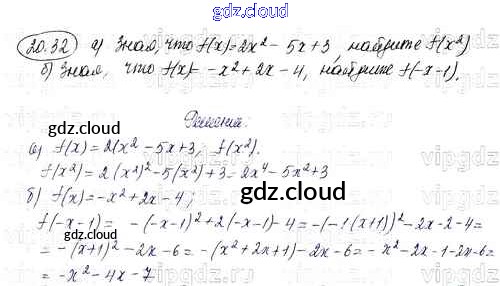 gdz.cloud
20.32 а) Зная, что f(x)=2x² - 5x+3, найдите f(x²)
б) Зная, что f(x)= -x²+2x-4, найдите f(-x-1).
gdz.cloud
Решение.
а) f(x)=2(x² -5x+3; f(x²).
f(x²)=2(x²)²-5(x²)+3=2x⁴-5x²+3
б) f(x)=-x²+2x-4;
gdz.cloud
f(-x-1)= -(-x-1)²+2(-x-1)-4=-(-1(x+1))²-2x-2-4=
= -(x+1)²-2x-6= -(x²+2x+1)-2x-6= -x²-2x-1-2x-6=
= -x²-4x-7
gdz.cloud
vipgdz